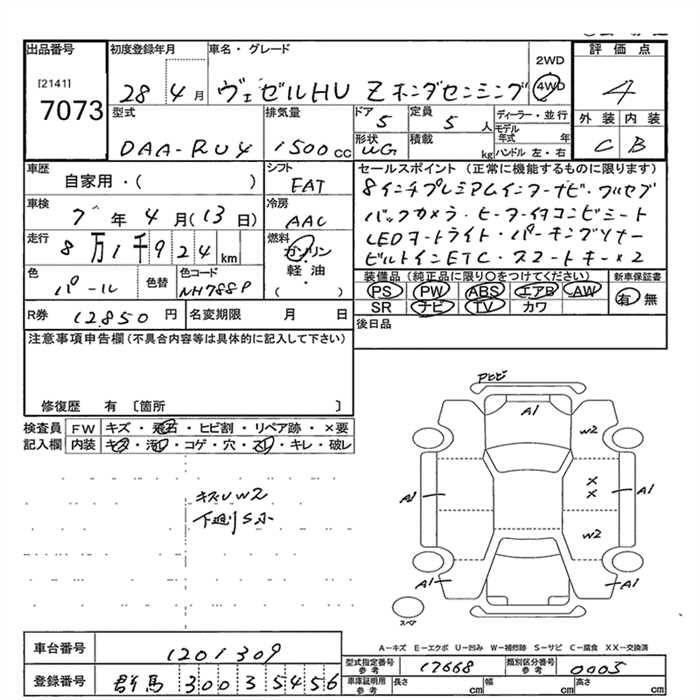 出品番号 初度登録年月 車名・グレード 2WD 評価点
[2141] 7073 28 4月 ヴェゼルHV Z ホンダセンシング 4WD 4
型式 排気量 ドア 5 定員 5 人 ディーラー・並行 外装 内装
DAA-RU4 1500cc 形状 UG 積載 kg モデル年式 年 ハンドル 左・右 C B
車歴 シフト セールスポイント (正常に機能するものに限ります)
自家用・( ) FAT 8インチプレミアムインターナビ・フルセグ
車検 冷房 バックカメラ・ヒーター付コンビシート
7年4月(13日) AAC LEDオートライト・パーキングソナー
走行 燃料 ビルトインETC・スマートキー×2
8万1千924km ガソリン
色 色替 色コード 軽油 装備品 (純正品に限り○をつけてください) 新車保証書
パール NH788P ( ) PS PW ABS エアB AW 有 無
SR ナビ TV カワ
R券 12850円 名変期限 月 日 後日品
注意事項申告欄 (不具合内容等は具体的に記入して下さい)
修復歴 有 〔箇所 〕
検査員 FW キズ・飛石・ヒビ割・リペア跡・×要
記入欄 内装 キズ・汚レ・コゲ・穴・スレ・キレ・破レ
キズUW2
下廻りS小
Pヒビ
A1
W2
A1 × × A1
W2
A1 A1
スペア
車台番号 1201309
A-キズ E-エクボ U-凹み W-補修跡 S-サビ C-腐食 XX-交換済
型式指定番号 参考 17668 類別区分番号 参考 0003
登録番号 群馬 300 3 5456 車庫証明用 参考 長さ cm 幅 cm 高さ cm